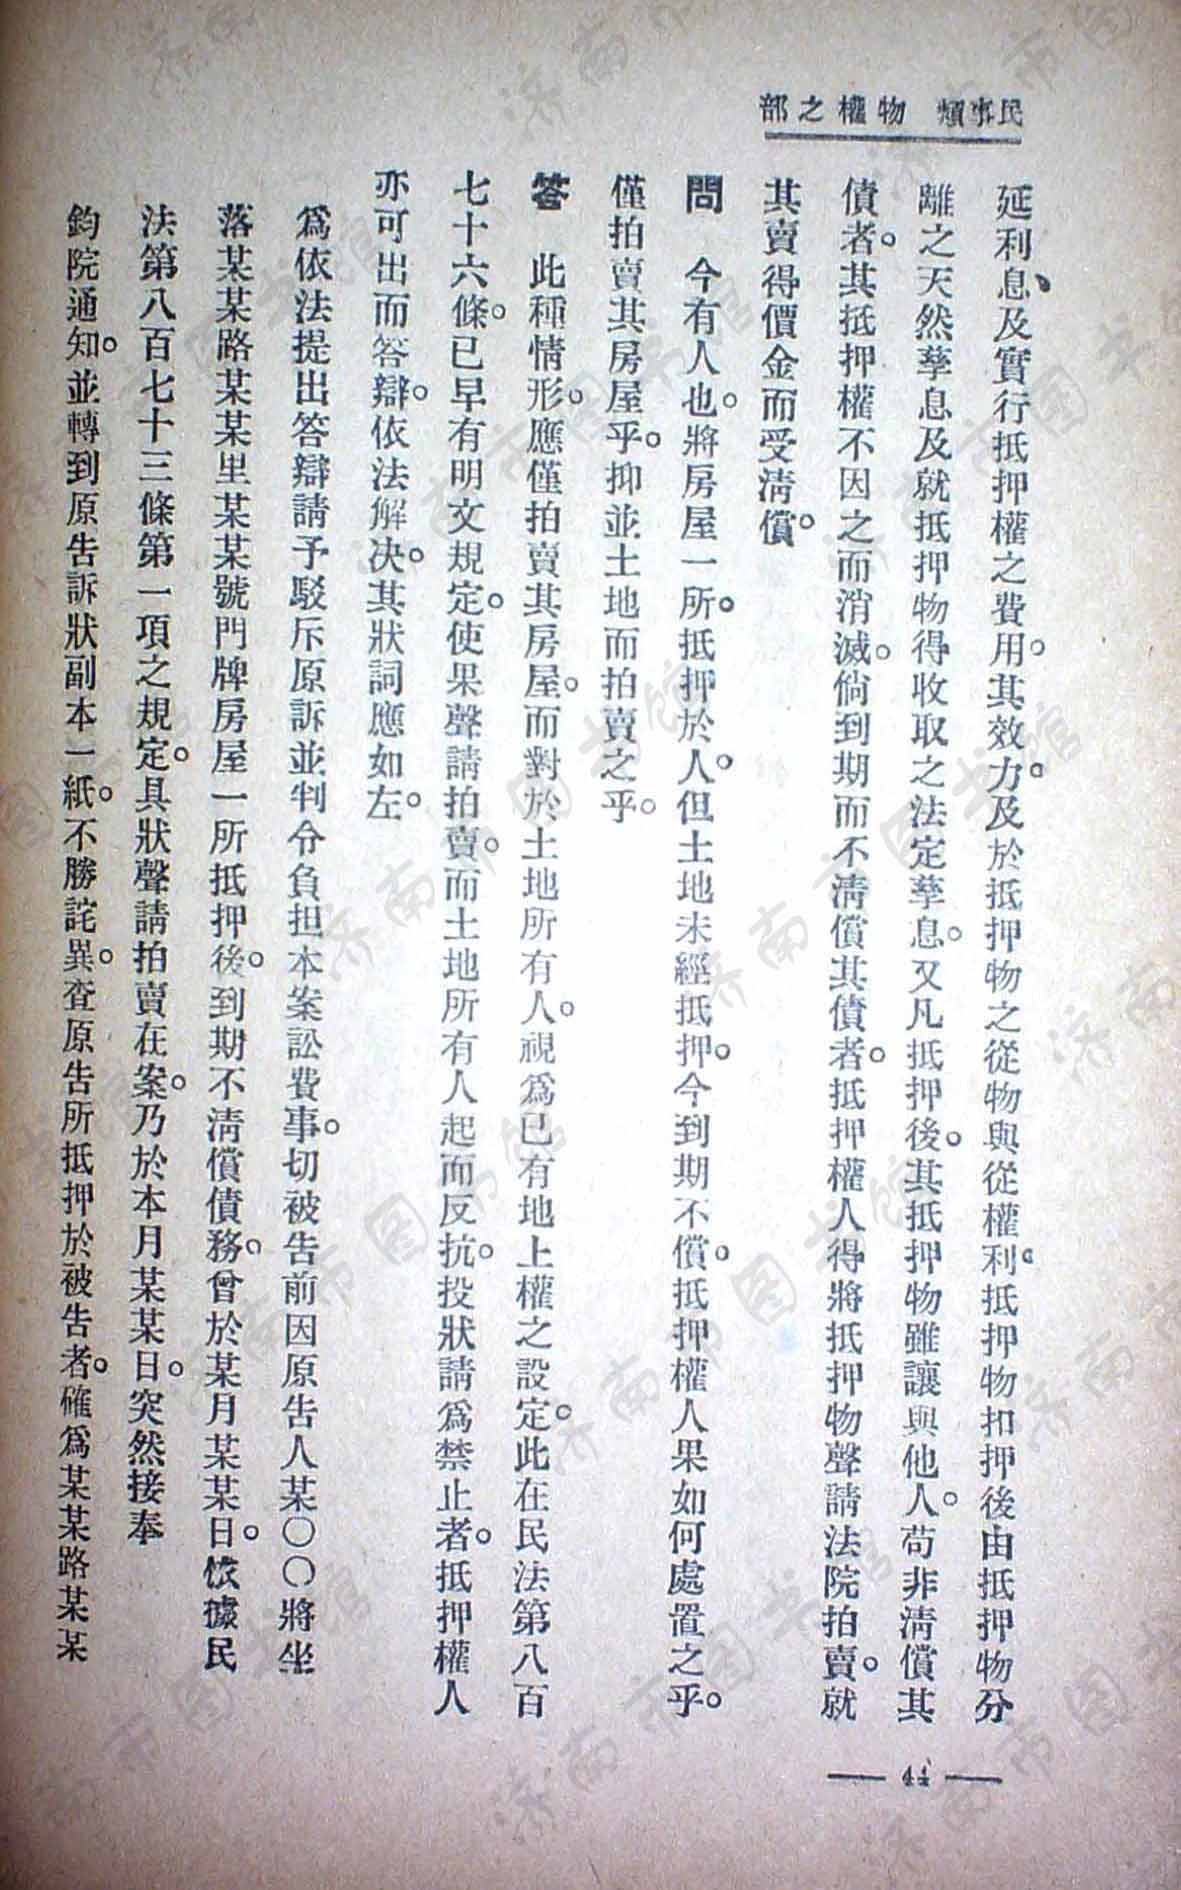 民事類 物權之部
延利息、及實行抵押權之費用。其效力。及於抵押物之從物與從權利。抵押物扣押後由抵押物分
離之天然孳息及就抵押物得收取之法定孳息。又凡抵押後。其抵押物雖讓與他人。苟非清償其
債者。其抵押權不因之而消滅。倘到期而不清償其債者。抵押權人得將抵押物聲請法院拍賣。就
其賣得價金而受清償。
問 今有人也。將房屋一所。抵押於人。但土地未經抵押。今到期不償。抵押權人果如何處置之乎。
僅拍賣其房屋乎。抑並土地而拍賣之乎。
答 此種情形。應僅拍賣其房屋。而對於土地所有人。視爲已有地上權之設定。此在民法第八百
七十六條。已早有明文規定。使果聲請拍賣。而土地所有人起而反抗。投狀請爲禁止者。抵押權人
亦可出而答辯。依法解決。其狀詞應如左。
爲依法提出答辯請予駁斥原訴並判令負担本案訟費事。切被告前因原告人某〇〇將坐
落某某路某某里某某號門牌房屋一所抵押後。到期不清償債務。曾於某月某某日。依據民
法第八百七十三條第一項之規定。具狀聲請拍賣在案。乃於本月某某日。突然接奉
鈞院通知。並轉到原告訴狀副本一紙。不勝詫異。查原告所抵押於被告者。確爲某某路某某
— 44 —
济南市图书馆